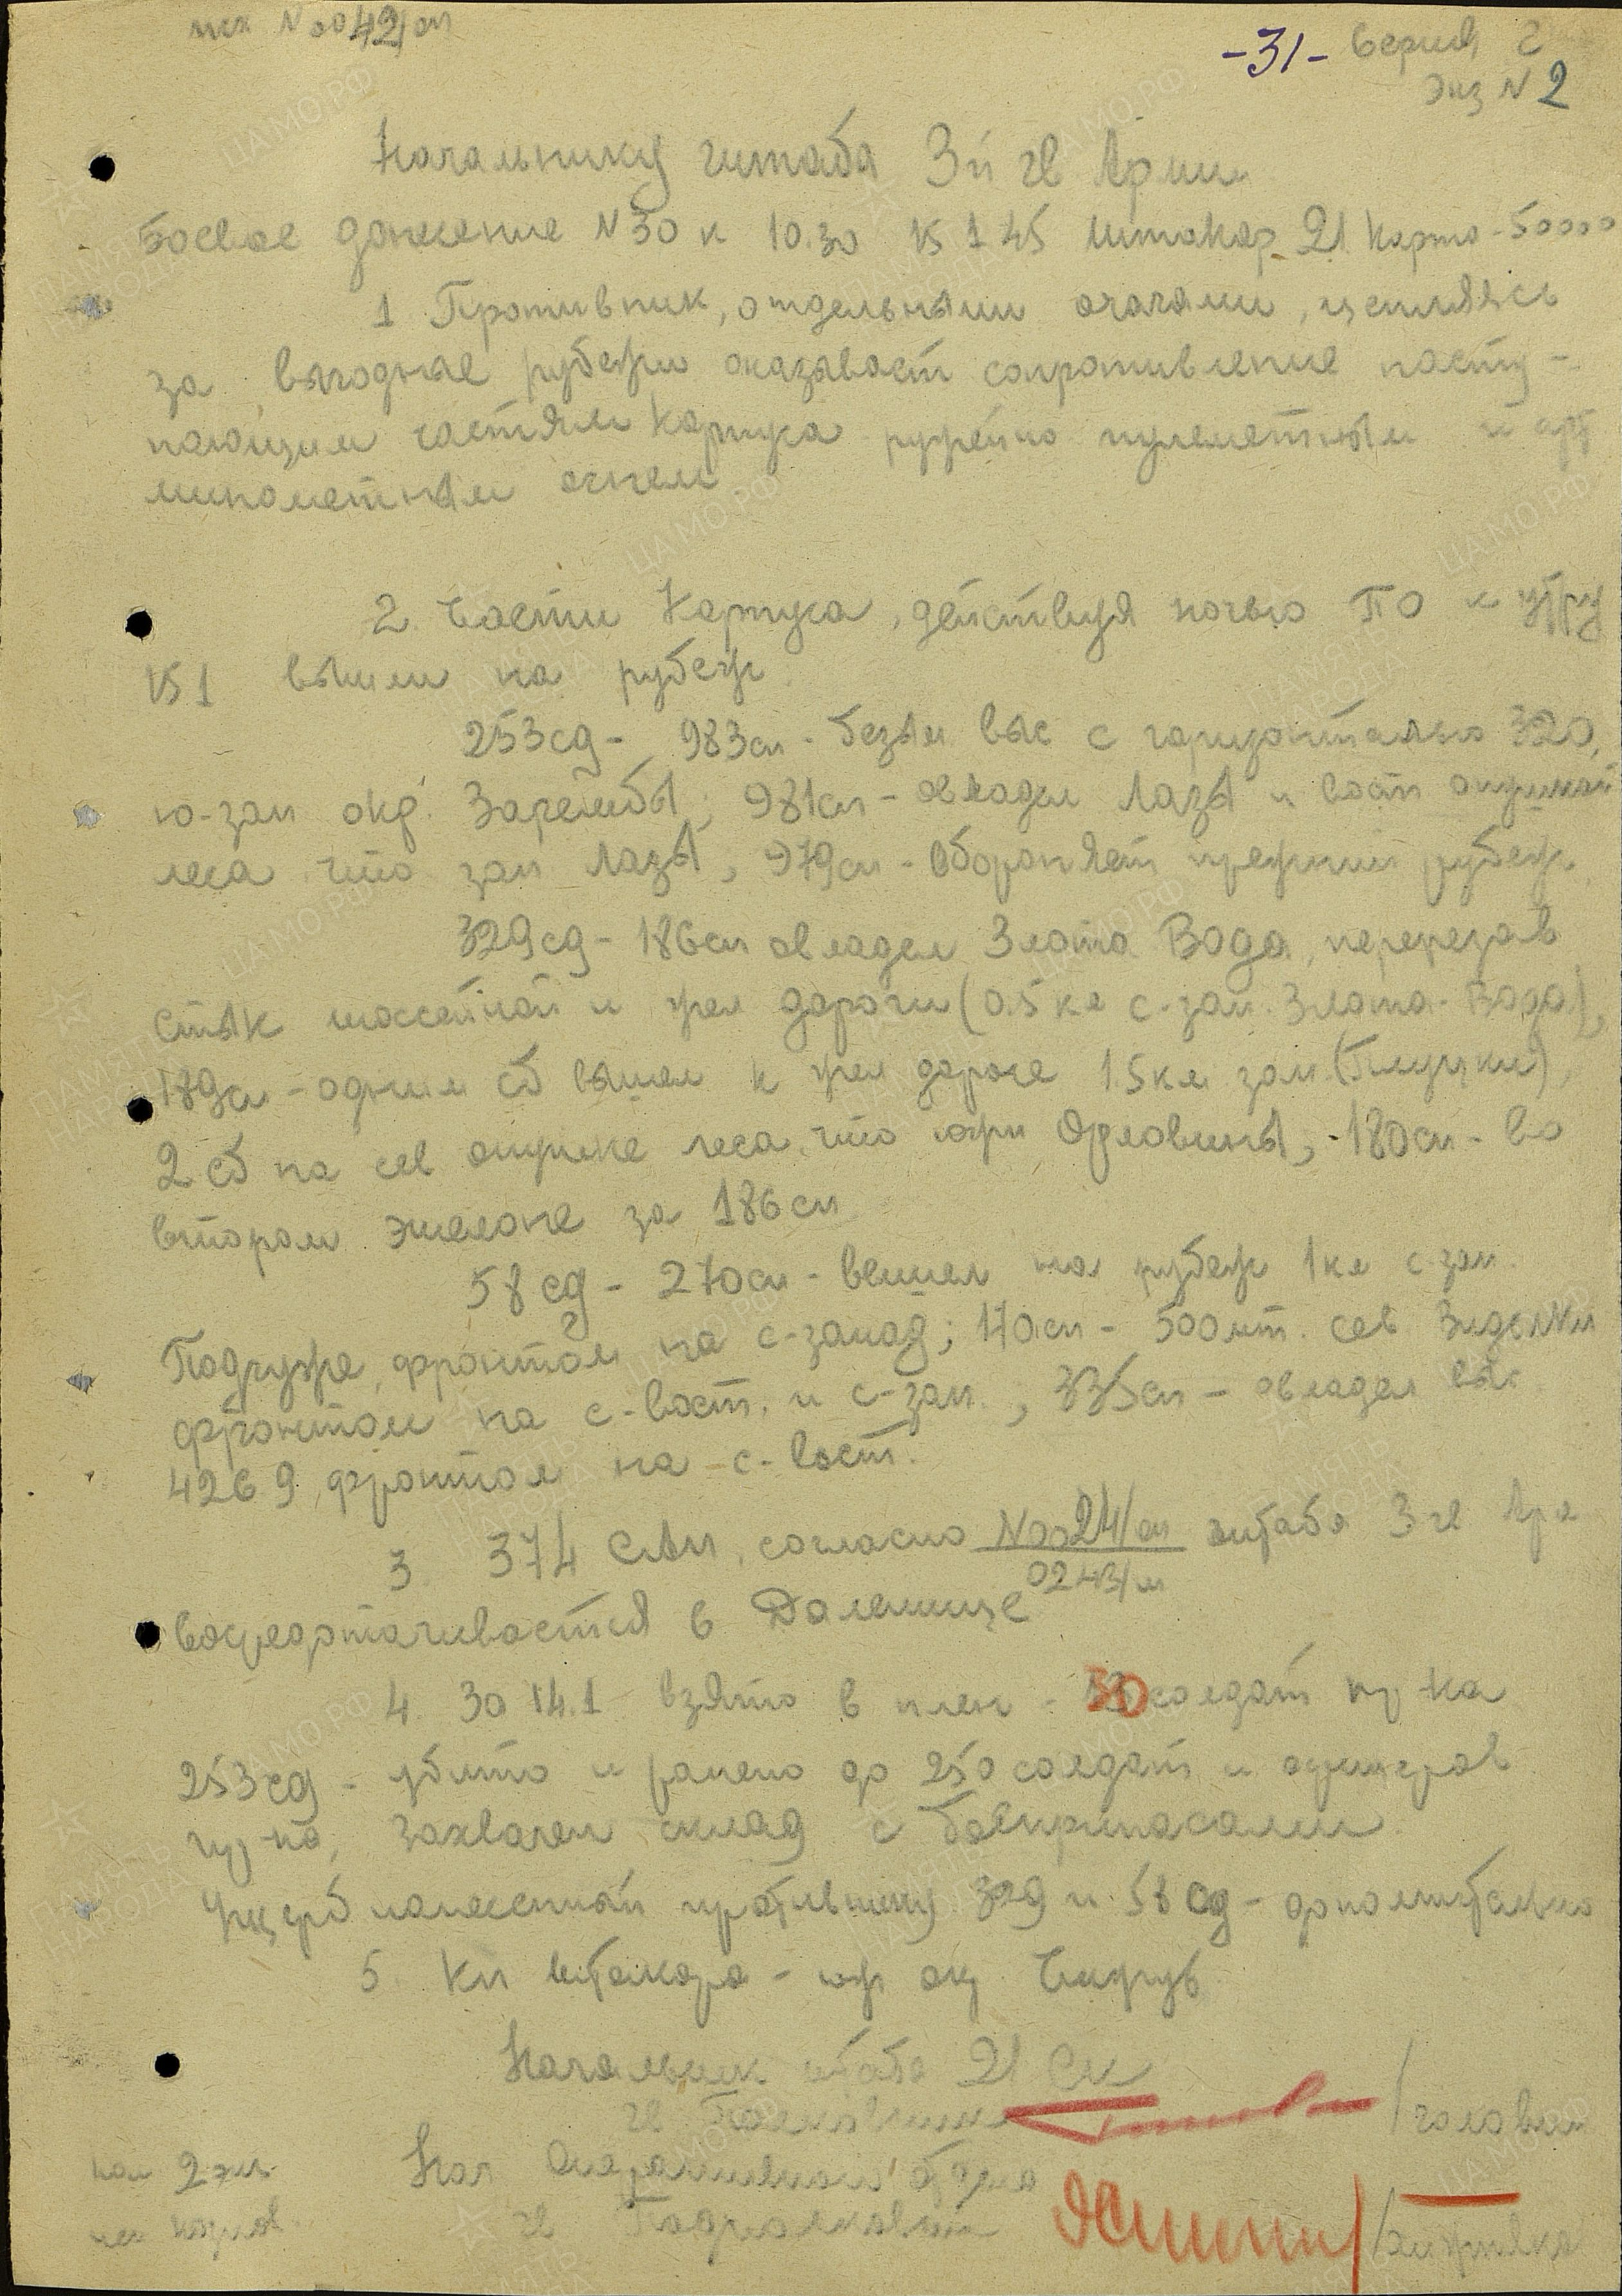 исх N 0042/оп
-31- Серия Г
Экз N 2
Начальнику штаба 3й гв Армии
Боевое донесение N 30 к 10.30 15 1 45 Штакор 21 Карта - 50000
1 Противник, отдельными очагами, цепляясь
за выгодные рубежи оказывает сопротивление насту-
пающим частям Корпуса ружейно пулеметным и арт
минометным огнем
2. Части Корпуса, действуя ночью ПО к утру
15 1 вышли на рубеж
253сд - 983сп - безым выс с горизонталью 320,
ю-зап окр. Зарембы; 981сп - овладел Лазы и вост опушкой
леса что зап Лазы, 979сп - обороняет прежний рубеж
329сд - 186сп овладел Злота Вода, перерезав
стык шоссейной и жел дороги (0.5 км с-зап. Злота-Вода),
179сп - одним сб вышел к жел дороге 1.5 км зап.
2 сб на сев опушке леса, что южн Орловины, - 180сп - во
втором эшелоне за 186 сп
58 сд - 270сп - вышел на рубеж 1 км с-зап.
Подгуже, фронтом на с-запад; 170сп - 500 мт. сев
фронтом на с-вост. и с-зап., 335сп - овладел выс
426 9, фронтом на с-вост.
3. 374 САП, согласно N 0024/оп штаба 3 гв Арм
0243/ш
восредотачивается в Далешице
4 За 14.1 взято в плен - 30 солдат пр-ка
253сд - убито и ранено до 250 солдат и офицеров
пр-ка, захвачен склад с боеприпасами
Ущерб нанесенный противнику 329 и 58 сд - дополнительно
5. Кп штакора - юж ок
Начальник штаба 21 Ск
гв Полковник
Нач Оперативного отдела
гв Подполковник
нап 2 экз.